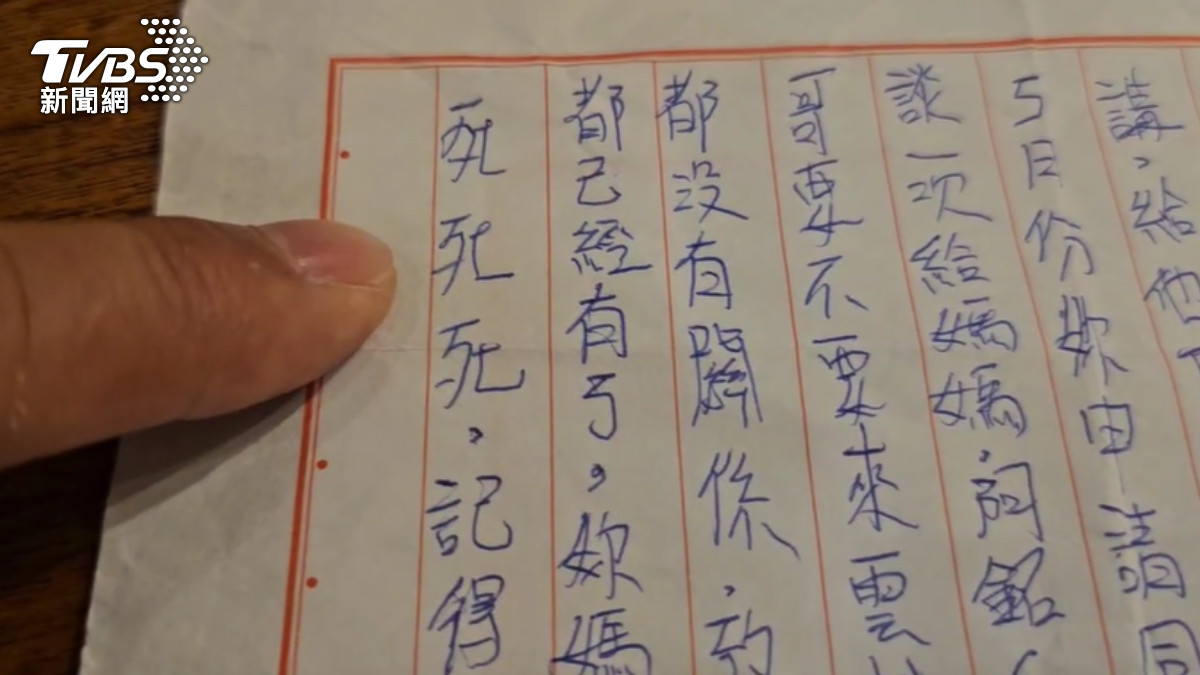 TVBS
新聞網
講,給他
5日份妳由請同
談一次給媽媽.問銘
哥要不要來雲
都没有關係.
都已經有了,妳媽
死死死,記得